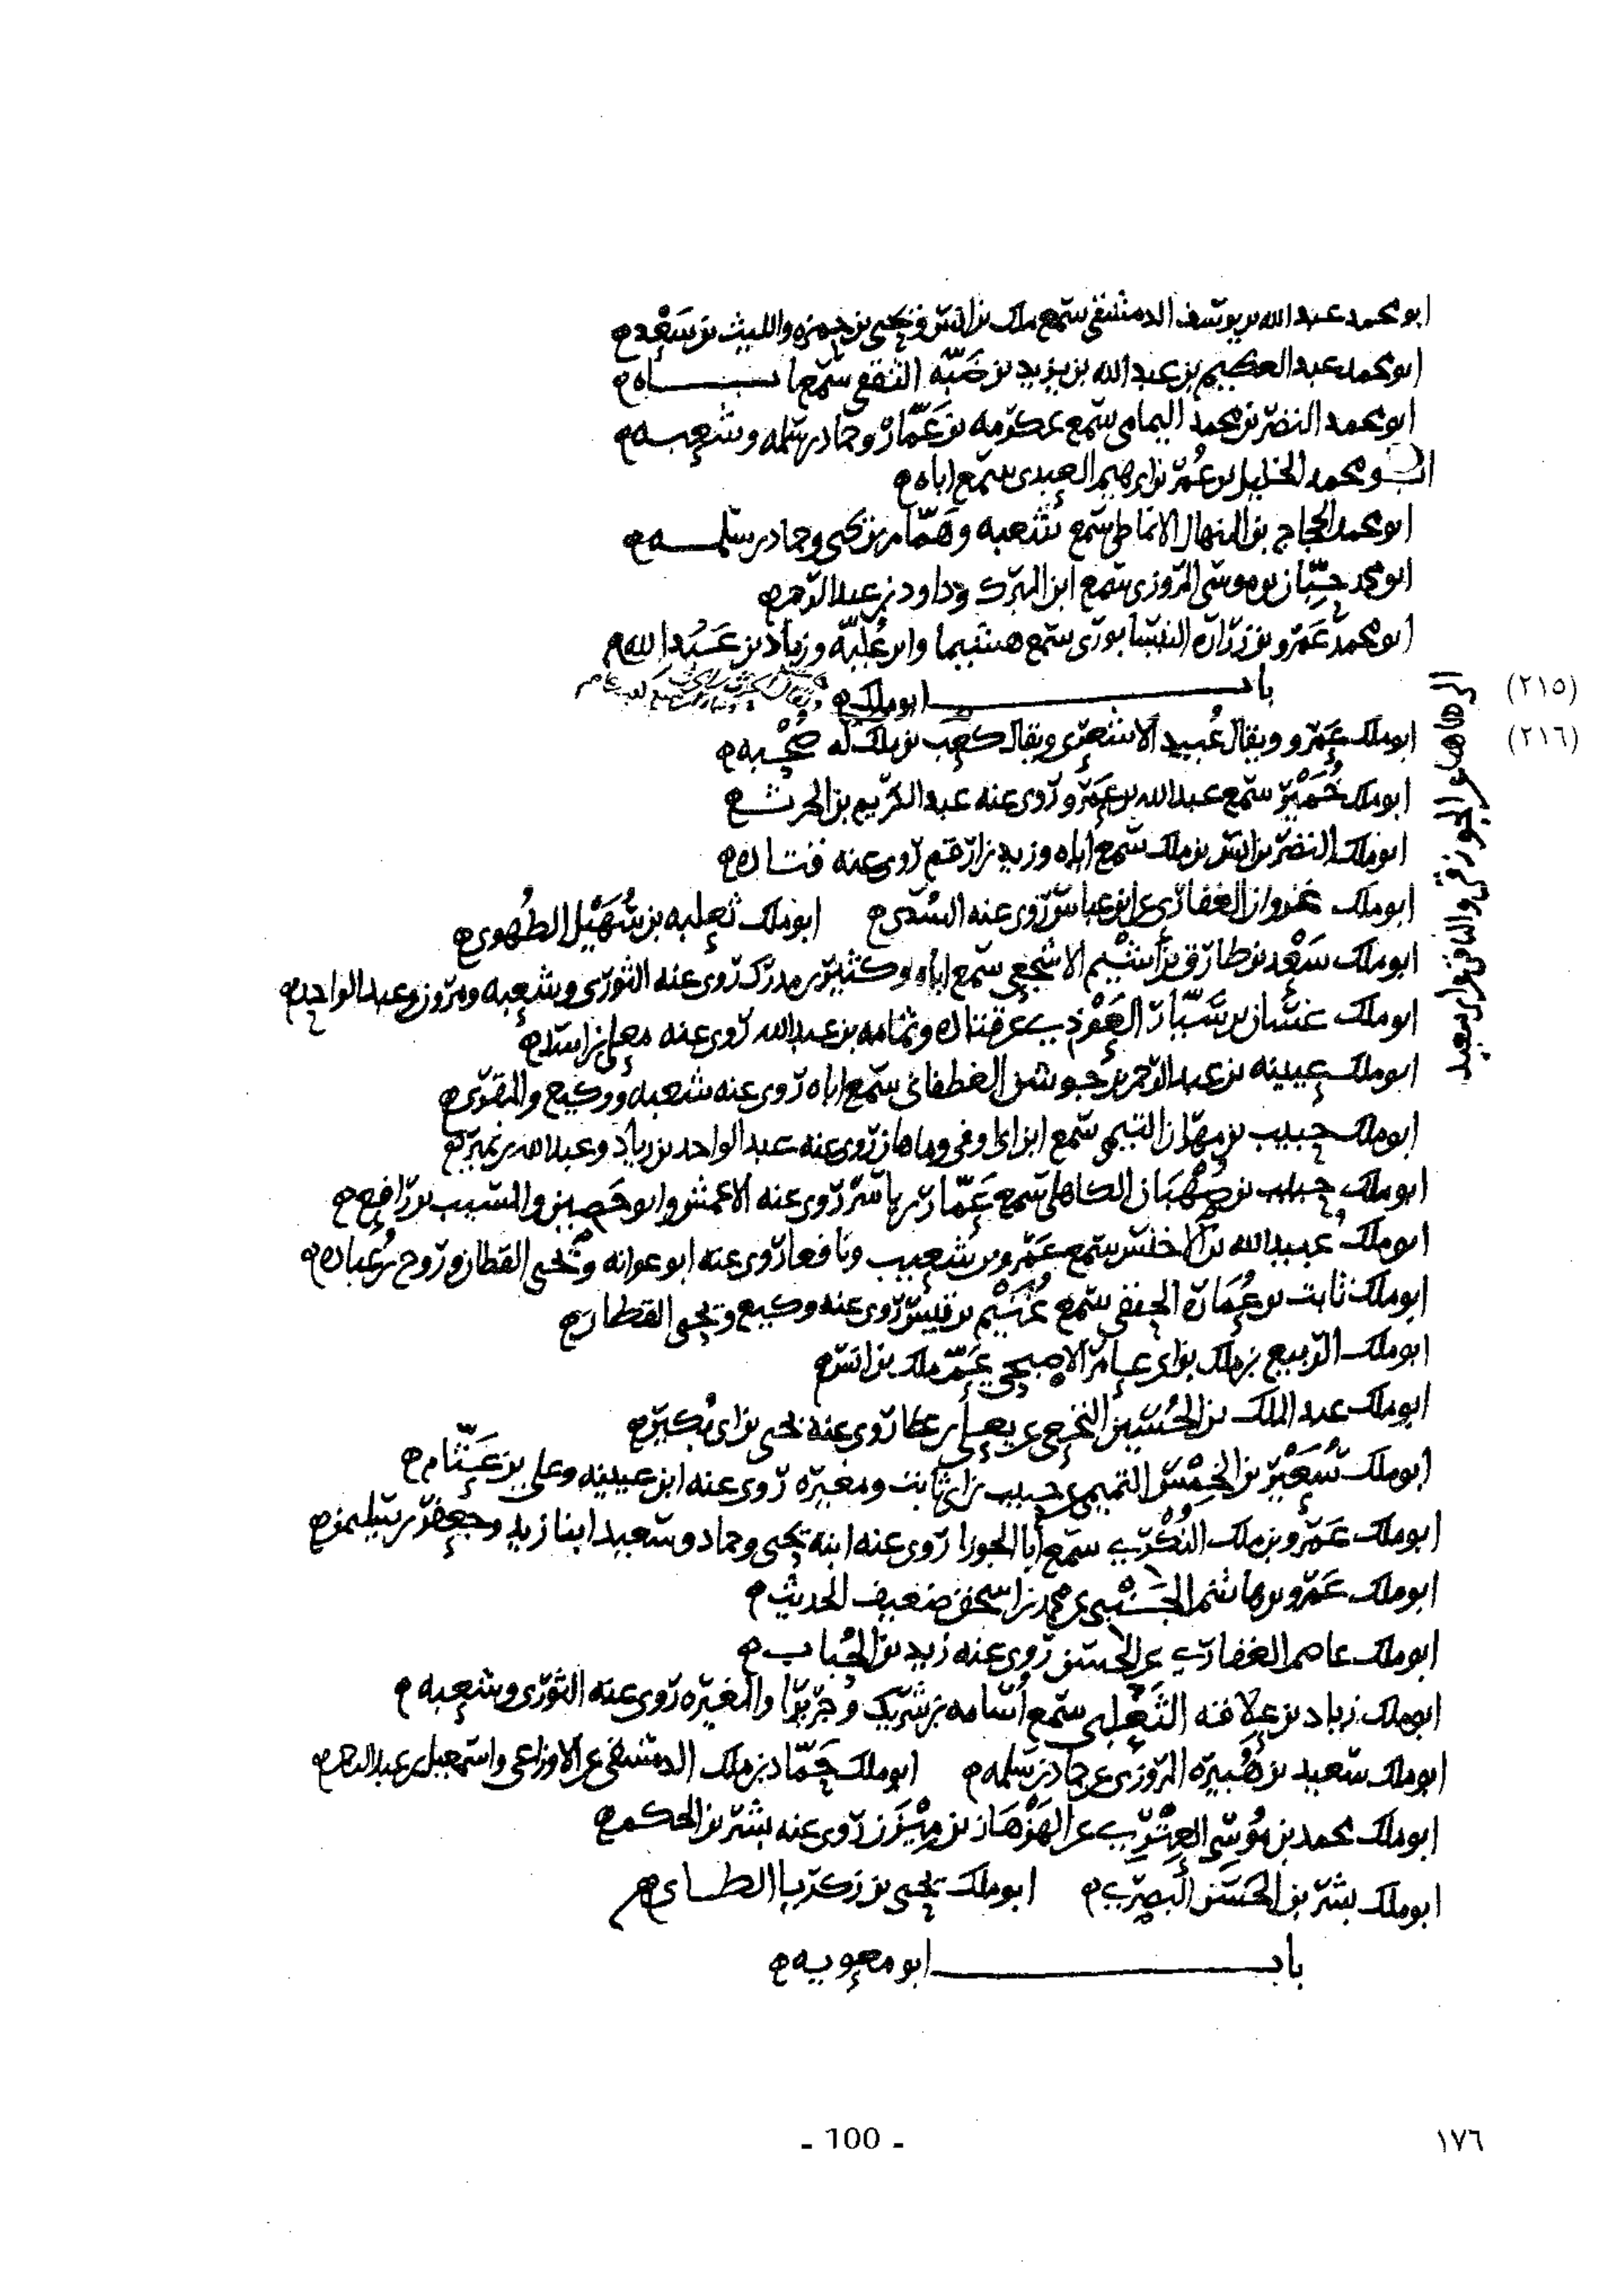 ابو محمد عبد الله بن يوسف الدمشقي سمع ملك بن انس ويحيى بن حمزه والليث بن سعد
ابو محمد عبد العظيم بن عبد الله بن يزيد بن ضبّه الثقفي سمع اباه
ابو محمد النضر بن محمد اليمامي سمع عكرمه بن عمّار وحماد بن سلمه وشعبه
ابو محمد الخليل بن عُمر بن ابرهيم العبدي سمع اباه
ابو محمد الحجاج بن المنهال الانماطي سمع شعبه وهمّام بن يحيى وحماد بن سلمه
ابو محمد حِبّان بن موسى المروزي سمع ابن المبرك وداود بن عبد الرحمن
ابو محمد عَمرو بن زرارة النيسابوري سمع هشيما وابن عُليّه وزياد بن عبد الله
باب ابو ملك
(٢١٥)
ابو ملك عَمرو ويقال عُبيد الاشعري ويقال كعب بن ملك له صُحْبه
(٢١٦)
ابو ملك حُمَيْر سمع عبد الله بن عمرو روى عنه عبد الكريم بن الحرث
ابو ملك النضر بن انس بن ملك سمع اباه وزيد بن ارقم روى عنه قتاده
ابو ملك غزوان الغفاري عن ابن عباس روى عنه السُدّي ابو ملك ثعلبه بن سُهَيْل الطُهوي
ابو ملك سَعْد بن طارق بن أشْيم الاشجعي سمع اباه وكثير بن مدرك روى عنه الثوري وشعبه ومروان وعبد الواحد
ابو ملك غسّان بن سيّار العَوْذي عن قتاده وثمامه بن عبد الله روى عنه معلى بن اسد
ابو ملك عيينه بن عبد الرحمن بن جوشن الغطفاني سمع اباه روى عنه شعبه ووكيع والمقرى
ابو ملك حبيب بن مهران التيمي سمع ابن ابي اوفى وماهان روى عنه عبد الواحد بن زياد وعبد الله بن نمير
ابو ملك حبيب بن صُهْبان الكاهلي سمع عمّار بن ياسر روى عنه الاعمش وابو حَصين والمسيب بن رافع
ابو ملك عبيد الله بن الاخنس سمع عَمرو بن شعيب ونافعا روى عنه ابو عوانه ويحيى القطان وروح بن عُباده
ابو ملك ثابت بن عُماره الحنفي سمع غُنَيْم بن قيس روى عنه وكيع ويحيى القطان
ابو ملك الربيع بن ملك بن ابي عامر الاصبحي عمّ ملك بن انس
ابو ملك عبد الملك بن الحُسَين النخعي عن يعلى بن عطا روى عنه يحيى بن ابي بُكير
ابو ملك سُعَيْر بن الخِمْس التميمي عن حبيب بن ابي ثابت ومغيره روى عنه ابن عيينه وعلي بن عَثّام
ابو ملك عَمرو بن ملك النُكْري سمع أبا الجوزا روى عنه ابنه يحيى وحماد وسعيد ابنا زيد وجعفر بن سليمن
ابو ملك عَمرو بن هاشم الجَنْبي عن محمد بن اسحق ضعيف الحديث
ابو ملك عاصم الغفاري عن الحسن روى عنه زيد بن الحُباب
ابو ملك زياد بن عِلاقه الثَعْلبي سمع أُسامه بن شريك وجَريرا والمغيره روى عنه الثوري وشعبه
ابو ملك سعيد بن هُبيره المروزي عن حماد بن سلمه ابو ملك حَمّاد بن ملك الدمشقي عن الاوزاعي واسمعيل بن عبد الرحمن
ابو ملك محمد بن موسى العنزي عن الهَزْهاز بن مِيْزَن روى عنه بشر بن الحكم
ابو ملك بشر بن الحَسَن البصري ابو ملك يحيى بن زكريا الطاي
باب ابو معويه
- 100 -
١٧٦